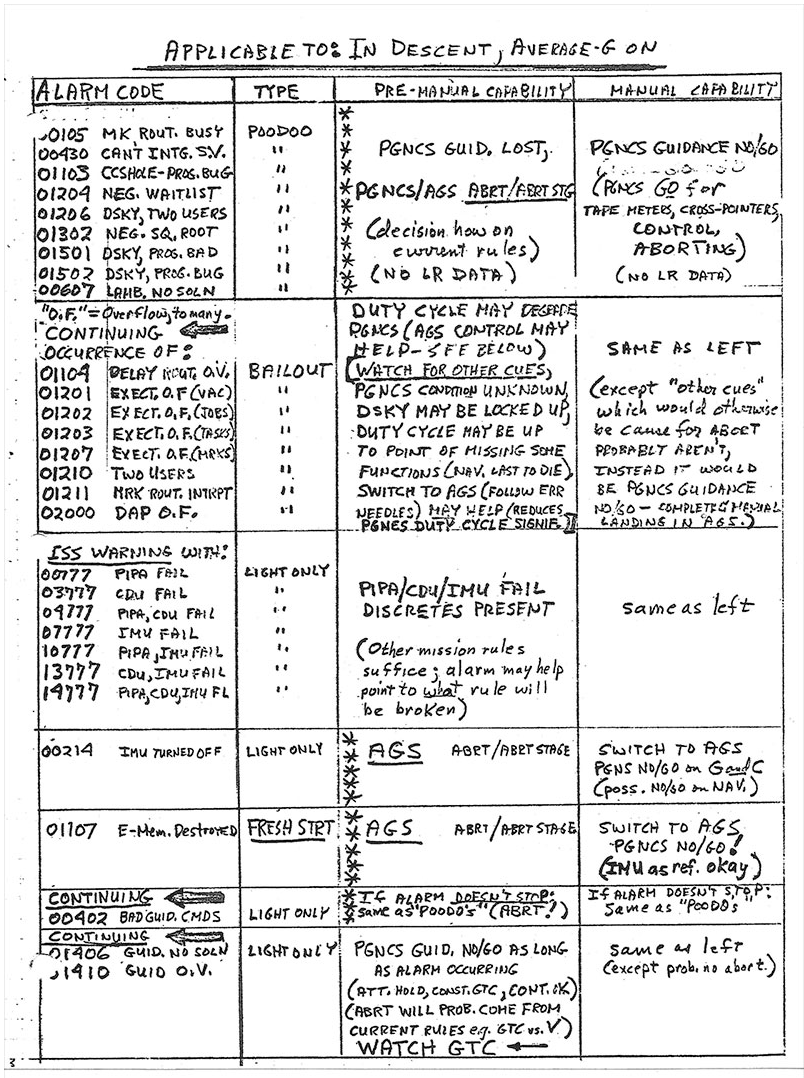 APPLICABLE TO: IN DESCENT, AVERAGE-G ON
ALARM CODE TYPE PRE-MANUAL CAPABILITY MANUAL CAPABILITY
00105 MK ROUT. BUSY POODOO
00430 CAN'T INTG. S.V. "
01103 CCSHOLE-PROG. BUG "
01204 NEG. WAITLIST "
01206 DSKY, TWO USERS "
01302 NEG. SQ. ROOT "
01501 DSKY, PROG. BAD "
01502 DSKY, PROG. BUG "
00607 LAMB. NO SOLN "
*
*
*
*
*
*
*
*
*
PGNCS GUID. LOST,
PGNCS/AGS ABRT/ABRT STG
(decision how on
current rules)
(NO LR DATA)
PGNCS GUIDANCE NO/GO
(PGNCS GO for
TAPE METERS, CROSS-POINTERS,
CONTROL,
ABORTING)
(NO LR DATA)
"O.F." = Overflow, to many.
CONTINUING
OCCURRENCE OF:
01104 DELAY ROUT. O.V. BAILOUT
01201 EXECT. O.F (VAC) "
01202 EXECT. O.F. (JOBS) "
01203 EXECT. O.F. (TASKS) "
01207 EXECT. O.F. (MRKS) "
01210 TWO USERS "
01211 MRK ROUT. INTRPT "
02000 DAP O.F. "
DUTY CYCLE MAY DEGRADE
PGNCS (AGS CONTROL MAY
HELP- SEE BELOW)
[WATCH FOR OTHER CUES,
PGNCS CONDITION UNKNOWN,
DSKY MAY BE LOCKED UP,
DUTY CYCLE MAY BE UP
TO POINT OF MISSING SOME
FUNCTIONS (NAV. LAST TO DIE),
SWITCH TO AGS (FOLLOW ERR
NEEDLES) MAY HELP (REDUCES
PGNCS DUTY CYCLE SIGNIF.)]
SAME AS LEFT
(except "other cues"
which would otherwise
be cause for ABORT
PROBABLY AREN'T,
INSTEAD IT WOULD
BE PGNCS GUIDANCE
NO/GO - COMPLETE MANUAL
LANDING IN AGS.)
ISS WARNING WITH:
00777 PIPA FAIL LIGHT ONLY
03777 CDU FAIL "
04777 PIPA, CDU FAIL "
07777 IMU FAIL "
10777 PIPA, IMU FAIL "
13777 CDU, IMU FAIL "
14777 PIPA, CDU, IMU FL "
PIPA/CDU/IMU FAIL
DISCRETES PRESENT
(Other mission rules
suffice; alarm may help
point to what rule will
be broken)
same as left
00214 IMU TURNED OFF LIGHT ONLY
*
*
*
*
*
AGS ABRT/ABRT STAGE
SWITCH TO AGS
PGNS NO/GO on G and C
(poss. NO/GO on NAV.)
01107 E-Mem. Destroyed FRESH STRT
*
*
*
*
*
AGS ABRT/ABRT STAGE
SWITCH TO AGS,
PGNCS NO/GO!
(IMU as ref. okay)
CONTINUING
00402 BAD GUID. CMDS LIGHT ONLY
* If ALARM DOESN'T STOP:
* same as "POODO'S" (ABRT!)
If ALARM DOESN'T STOP:
Same as "POODO'S
CONTINUING
01406 GUID. NO SOLN LIGHT ONLY
01410 GUID O.V.
PGNCS GUID. NO/GO AS LONG
AS ALARM OCCURRING
(ATT. HOLD, CONST. GTC, CONT. OK)
(ABRT WILL PROB. COME FROM
CURRENT RULES e.g. GTC vs. V)
WATCH GTC
same as left
(except prob. no abort.)
3